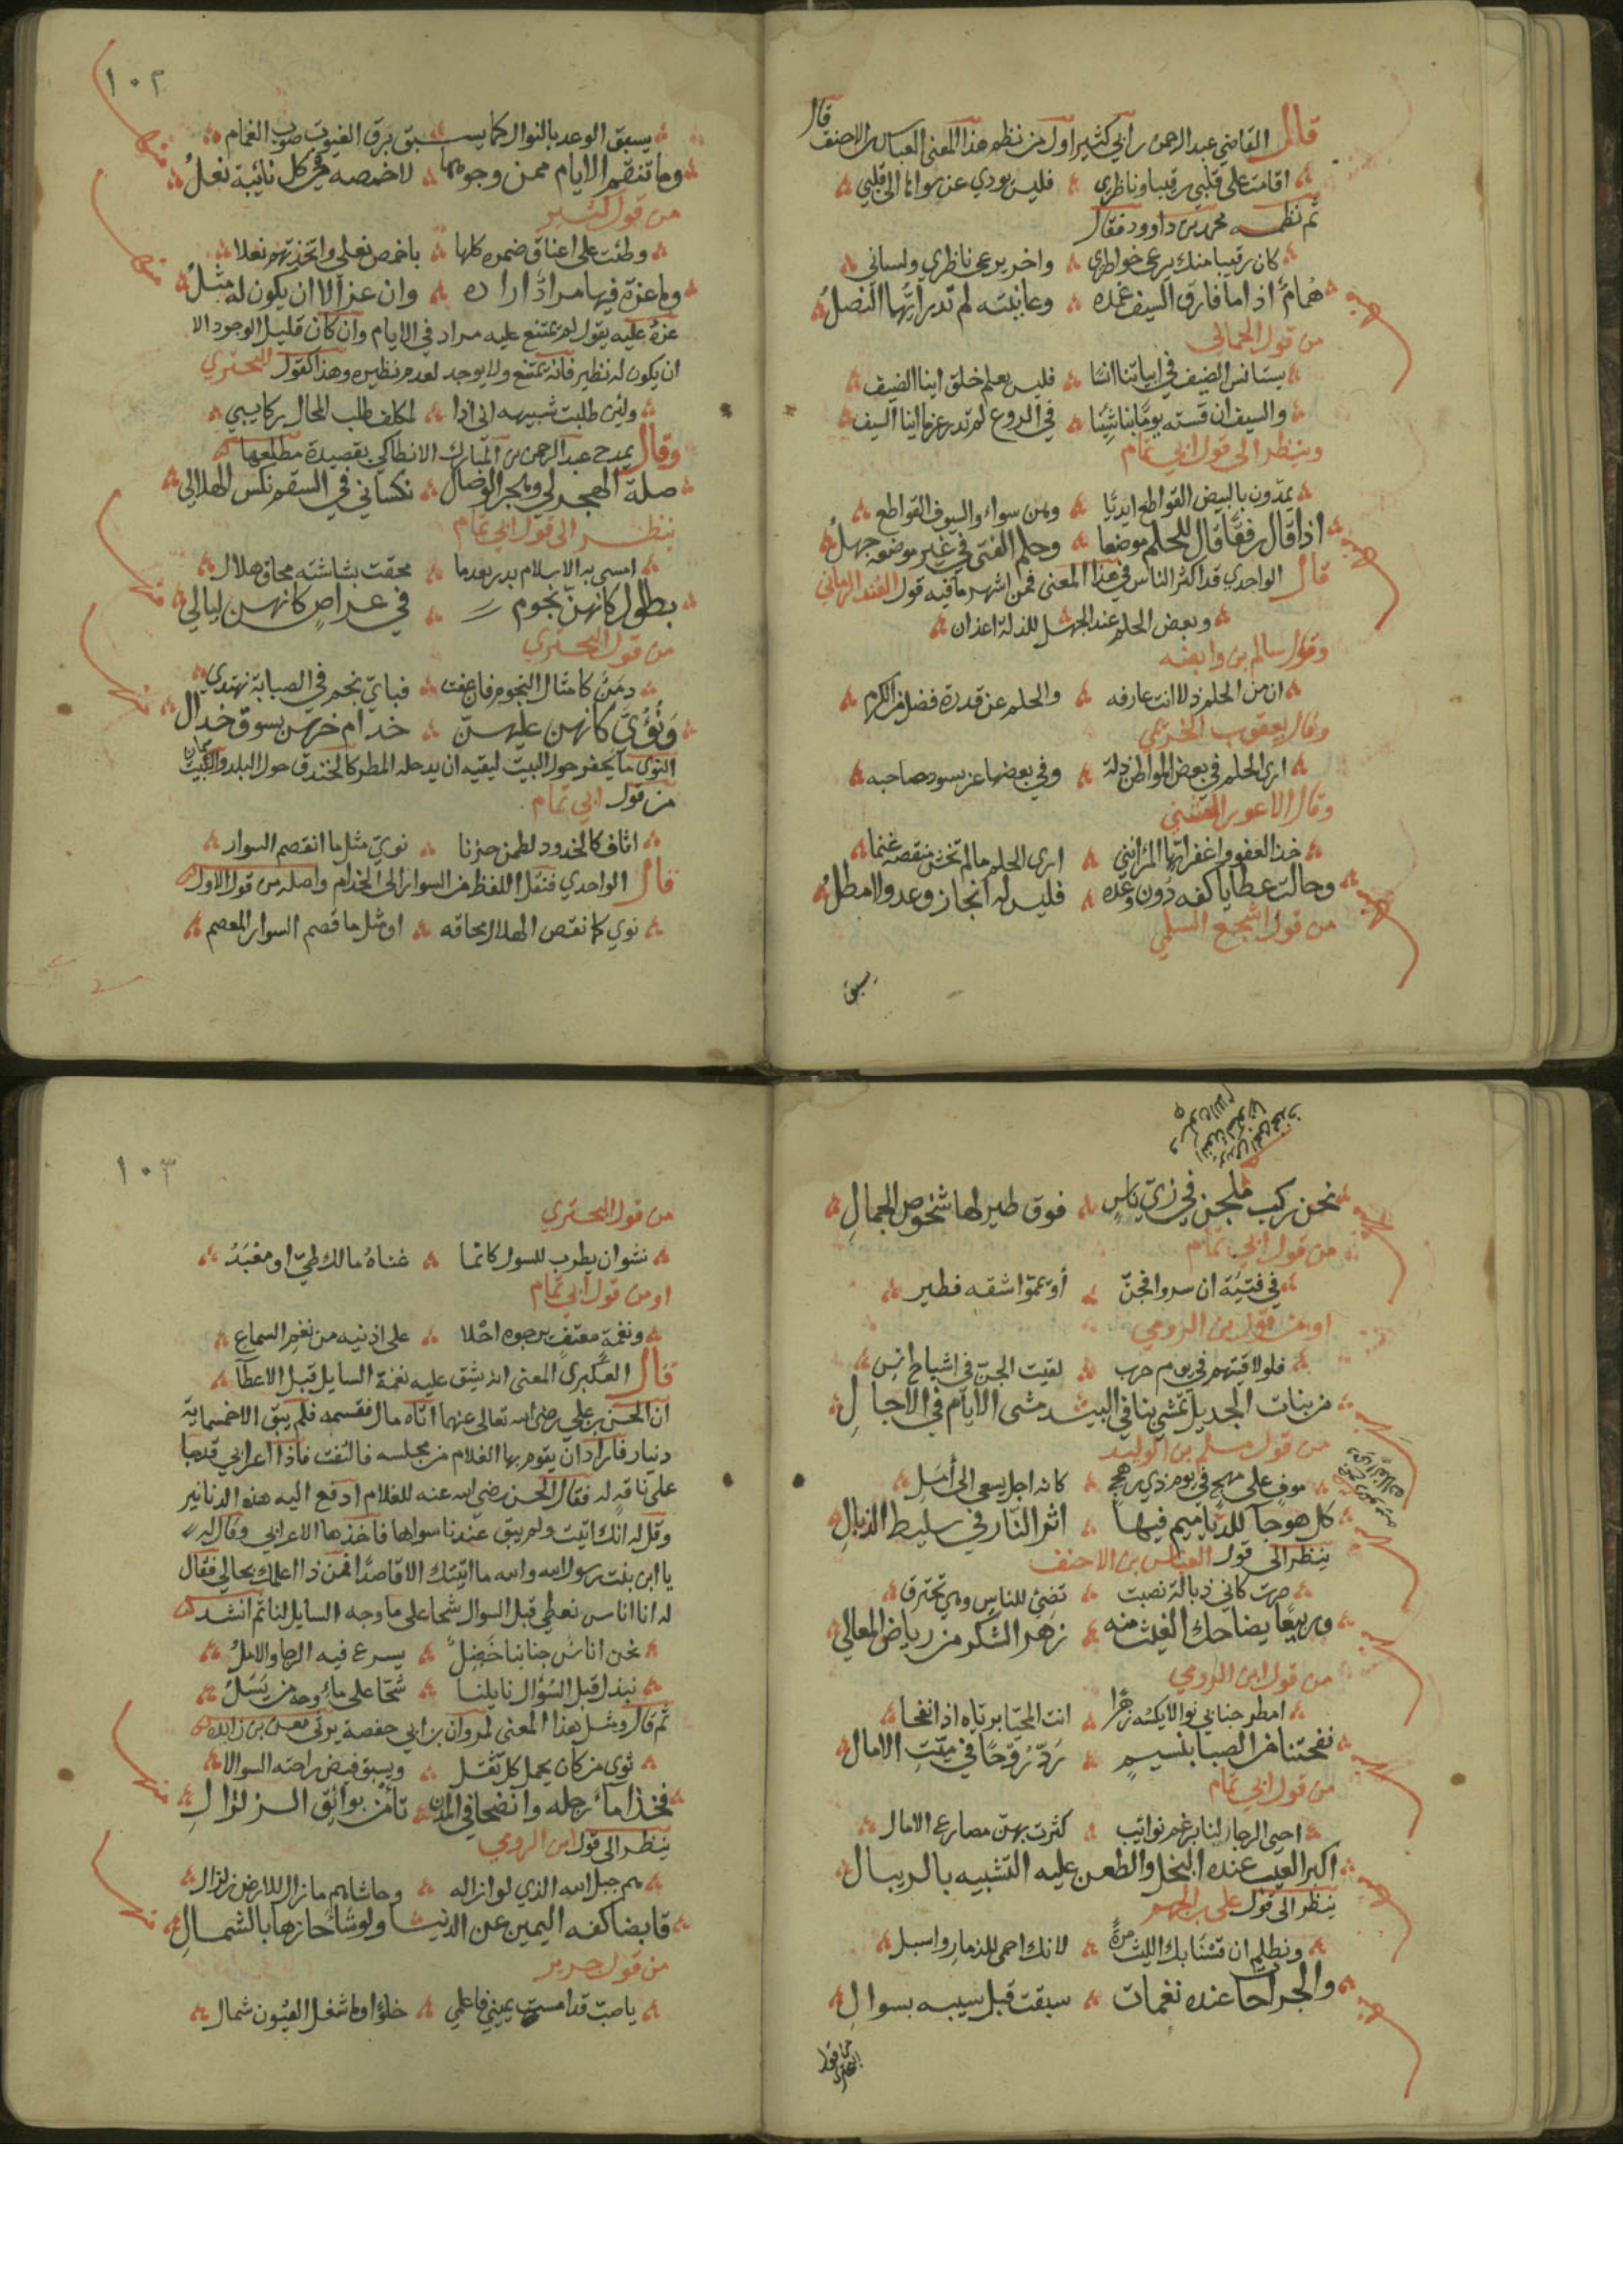 قال
قال القاضي عبد الرحمن بن ابي كثير اول من نظم هذا المعنى العباس بن الاحنف
اقامت على قلبي رقيبا وناظري فليس يودي عن سوانا الى قلبي
ثم نظمه محمد بن داوود فقال
كان رقيبا منك يرعى خواطري واخر يرعى ناظري ولساني
همام اذا ما فارق السيف غمده وعاينته لم تدر ايهما النصل
من قول
يستانس الضيف في ابياتنا انسا فليس يعلم خلق اينا الضيف
والسيف ان قسته يوما بنا شبها في الروع لم تدر عزما اينا السيف
وينظر الى قول ابي تمام
يمدون بالبيض القواطع ايديا وهن سواء والسيوف القواطع
اذا قال رفقا قال للحلم موضعا وحلم الفتى في غير موضعه جهل
قال الواحدي قد اكثر الناس في هذا المعنى فمن اشهر ما فيه قول الفند الزماني
وبعض الحلم عند الجهل للذلة اذعان
وقول سالم بن وابصه
ان من الحلم ذلا انت عارفه والحلم عن قدرة فضل من الكرم
وقال يعقوب الخريمي
ارى الحلم في بعض المواطن ذلة وفي بعضها عز يسود صاحبه
وقال الاعور الشني
خذ العفو واغفر ايها المرء انني ارى الحلم ما لم تخش منقصة غنما
وحالت عطايا كفه دون وعده فليس له انجاز وعد ولا مطل
من قول اشجع السلمي
يسبق
١٠٢
يسبق الوعد بالنوال كما يسبق برق الغيوث صوب الغمام
وما تنقم الايام ممن وجوهها لاخمصه في كل نائبة نعل
من قول كثير
وطئت على اعناق ضمره كلها باخمص نعلي واتخذتهم نعلا
وما عزة فيها مراد اراده وان عز الا ان يكون له مثل
عزه عليه يقول لم يمتنع عليه مراد في الايام وان كان قليل الوجود الا
ان يكون له نظير فانه يمتنع ولا يوجد لعدم نظيره وهذا كقول البحتري
ولئن طلبت شبيهه اني اذا لمكلف طلب المحال ركابي
وقال يمدح عبد الرحمن بن المبارك الانطاكي بقصيدة مطلعها
صلة الهجر لي وهجر الوصال نكساني في السقم نكس الهلال
ينظر الى قول ابي تمام
امسى به الاسلام بدرا بعدما محقت بشاشته محاق هلال
بطلول كانهن نجوم في عراص كانهن ليالي
من قول البحتري
دمن كامثال النجوم فان عفت فباي نجم في الصبابة نهتدي
ونؤي كانهن عليهن خدام خرس بسوق خدال
النوى ما يحفر حول البيت ليقيه ان يدخله المطر كالخندق حول البلد والبيت
من قول ابي تمام
اثاف كالخدود لطمن حزنا نوي مثل ما انفصم السوار
قال الواحدي فنقل اللفظ من السوار الى الخدام واصله من قول الاول
نوي كما نقص الهلال محاقه او مثل ما قصم السوار المعصم
نحن ركب ملجن في زي ناس فوق طير لها شخوص الجمال
من قول ابي تمام
في فتية ان سروا فجن او يمموا شقه فطير
او من قول بن الرومي
فلو لاقيتهم في يوم حرب لقيت الجن في اشباح انس
من بنات الجديل تمشي بنا في البيد مشي الايام في الاجال
من قول مسلم بن الوليد
موف على مهج في يوم ذي رهج كانه اجل يسعى الى امل
كل هوجا للدياميم فيها اثر النار في سليط الذبال
ينظر الى قول العباس بن الاحنف
صرت كاني ذبالة نصبت تضئ للناس وهي تحترق
وربيعا يضاحك الغيث منه زهر الشكر من رياض المعالي
من قول ابن الرومي
امطر جنابي نوالا يكسه زهرا انت المحيا برياه اذا نفحا
نفحتنا منه الصبا بنسيم رد روحا في ميت الامال
من قول ابي تمام
احيى الرجا لنا برغم نوائب كثرت بهن مصارع الامال
اكبر العيب عنده البخل والطعن عليه التشبيه بالريبال
ينظر الى قول علي بن الجهم
ونظلم ان قسنا بك الليث مرة لانك احمى للذمار واسبل
والجراحات عنده نغمات سبقت قبل سيبه بسوال
من قول البحتري
١٠٣
من قول البحتري
نشوان يطرب للسوال كانما غناه مالك طي او معبد
او من قول ابي تمام
ونغمة معتف يرجوه احلا على اذنيه من نغم السماع
قال العكبري المعنى انه يشق عليه نغمة السايل قبل الاعطآ
ان الحسن بن علي رضى الله تعالى عنهما اتاه مال فقسمه فلم يبق الا خمسماية
دينار فاراد ان يقوم بها الغلام من مجلسه فالتفت فاذا اعرابي قد جا
على ناقة له فقال الحسن رضي الله عنه للغلام ادفع اليه هذه الدنانير
وقل له انك اتيت ولم يبق عندنا سواها فاخذها الاعرابي وقال له
يا ابن بنت رسول الله والله ما اتيتك الا قاصدا فمن ذا اعلمك بحالي فقال
له انا اناس نعطي قبل السوال شحا على ما وجه السايل لنا ثم انشد
نحن اناس جنابنا خضل يسرع فيه الرجا والامل
نبذل قبل السؤال نايلنا شحا على ماء وجه من يسل
ثم قال ومثل هذا المعنى لمروان بن ابي حفصة يرثي معن بن زايده
ثوى من كان يحمل كل ثقل ويسبق فيض راحته السوالا
فخذا ماء رجله وانضحا في المدن تأمن بوائق الزلزال
ينظر الى قول ابن الرومي
هم جبل الله الذي لو ازاله وحاشاهم ما زال للارض زلزال
قابضا كفه اليمين عن الدنيا ولو شا حازها بالشمال
من قول جرير
يا صب قد امست يميني فاعلمي خلوا وما شغل القيون شمال